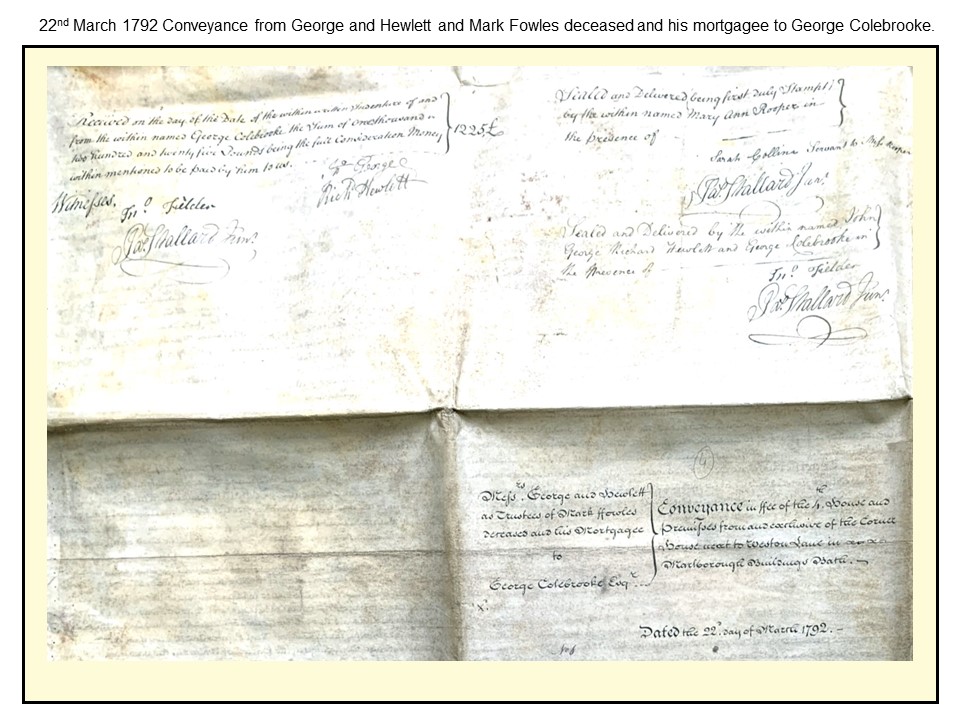 22nd March 1792 Conveyance from George and Hewlett and Mark Fowles deceased and his mortgagee to George Colebrooke.
Received on the day of the Date of the within written Indenture of and
from the within named George Colebrooke the Sum of One thousand
two hundred and twenty five Pounds being the full Consideration Money
within mentioned to be paid by him to us.
1225£
George
Richd Hewlett
Witnesses,
Jno. Fielder
Jas. Stallard Junr.
Sealed and Delivered being first duly Stampt
by the within named Mary Ann Rooper in
the presence of
Sarah Collins Servant to Mrs Rooper
Jas. Stallard Junr.
Sealed and Delivered by the within named John
George Richard Hewlett and George Colebrooke in
the Presence of
Jno. Fielder
Jas. Stallard Junr.
4
Messrs. George and Hewlett
as Trustees of Mark ffowles
deceased and his Mortgagee
to
George Colebrooke Esqr.
Conveyance in ffee of the 4th. House and
Premisses from and exclusive of the Corner
House next to Weston Lane in
Marlborough Buildings Bath.
Dated the 22d. day of March 1792.